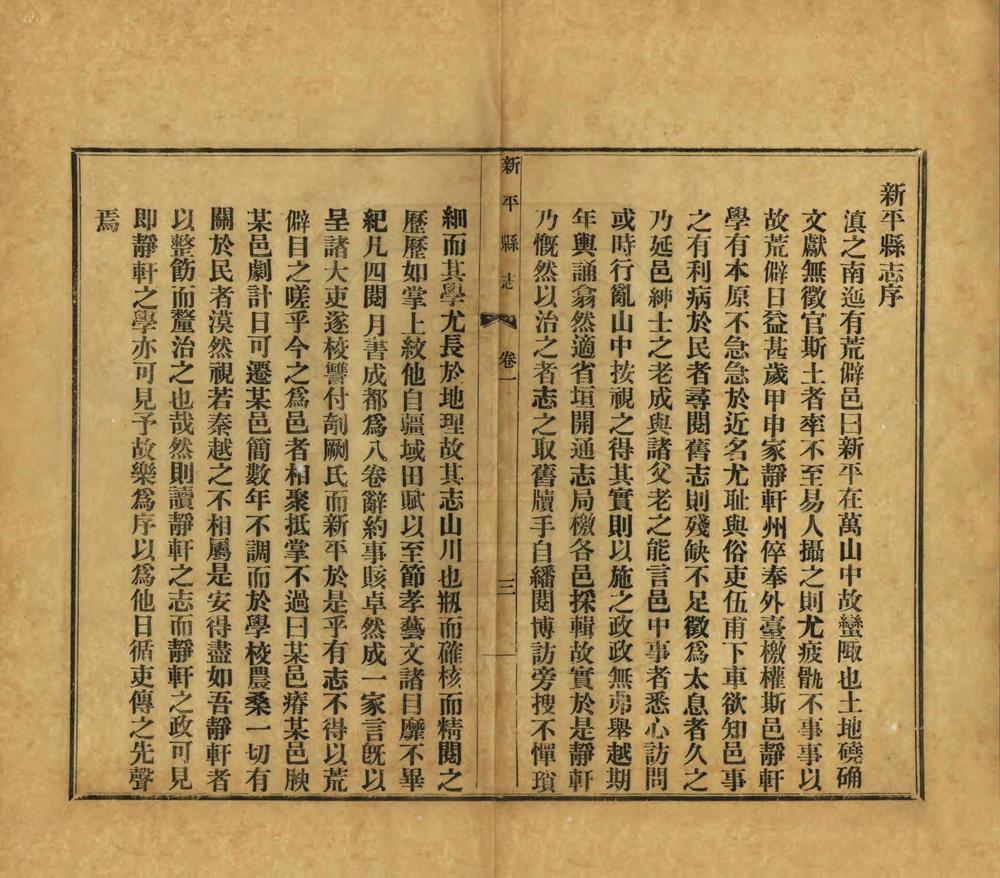 新平縣志序
滇之南迤有荒僻邑曰新平在萬山中故蠻陬也土地磽确
文獻無徵官斯土者率不至易人攝之則尤疲骫不事事以
故荒僻日益甚歲甲申家靜軒州倅奉外臺檄權斯邑靜軒
學有本原不急急於近名尤耻與俗吏伍甫下車欲知邑事
之有利病於民者尋閱舊志則殘缺不足徵爲太息者久之
乃延邑紳士之老成與諸父老之能言邑中事者悉心訪問
或時行亂山中按視之得其實則以施之政政無弗舉越期
年輿誦翕然適省垣開通志局檄各邑採輯故實於是靜軒
乃慨然以治之者志之取舊牘手自繙閱博訪旁搜不憚瑣
新平縣志
卷一
三
細而其學尤長於地理故其志山川也剏而確核而精閱之
歷歷如掌上紋他自疆域田賦以至節孝藝文諸目靡不畢
紀凡四閱月書成都爲八卷辭約事賅卓然成一家言旣以
呈諸大吏遂校讐付剞劂氏而新平於是乎有志不得以荒
僻目之嗟乎今之爲邑者相聚抵掌不過曰某邑瘠某邑腴
某邑劇計日可遷某邑簡數年不調而於學校農桑一切有
關於民者漠然視若秦越之不相屬是安得盡如吾靜軒者
以整飭而釐治之也哉然則讀靜軒之志而靜軒之政可見
即靜軒之學亦可見予故樂爲序以爲他日循吏傳之先聲
焉